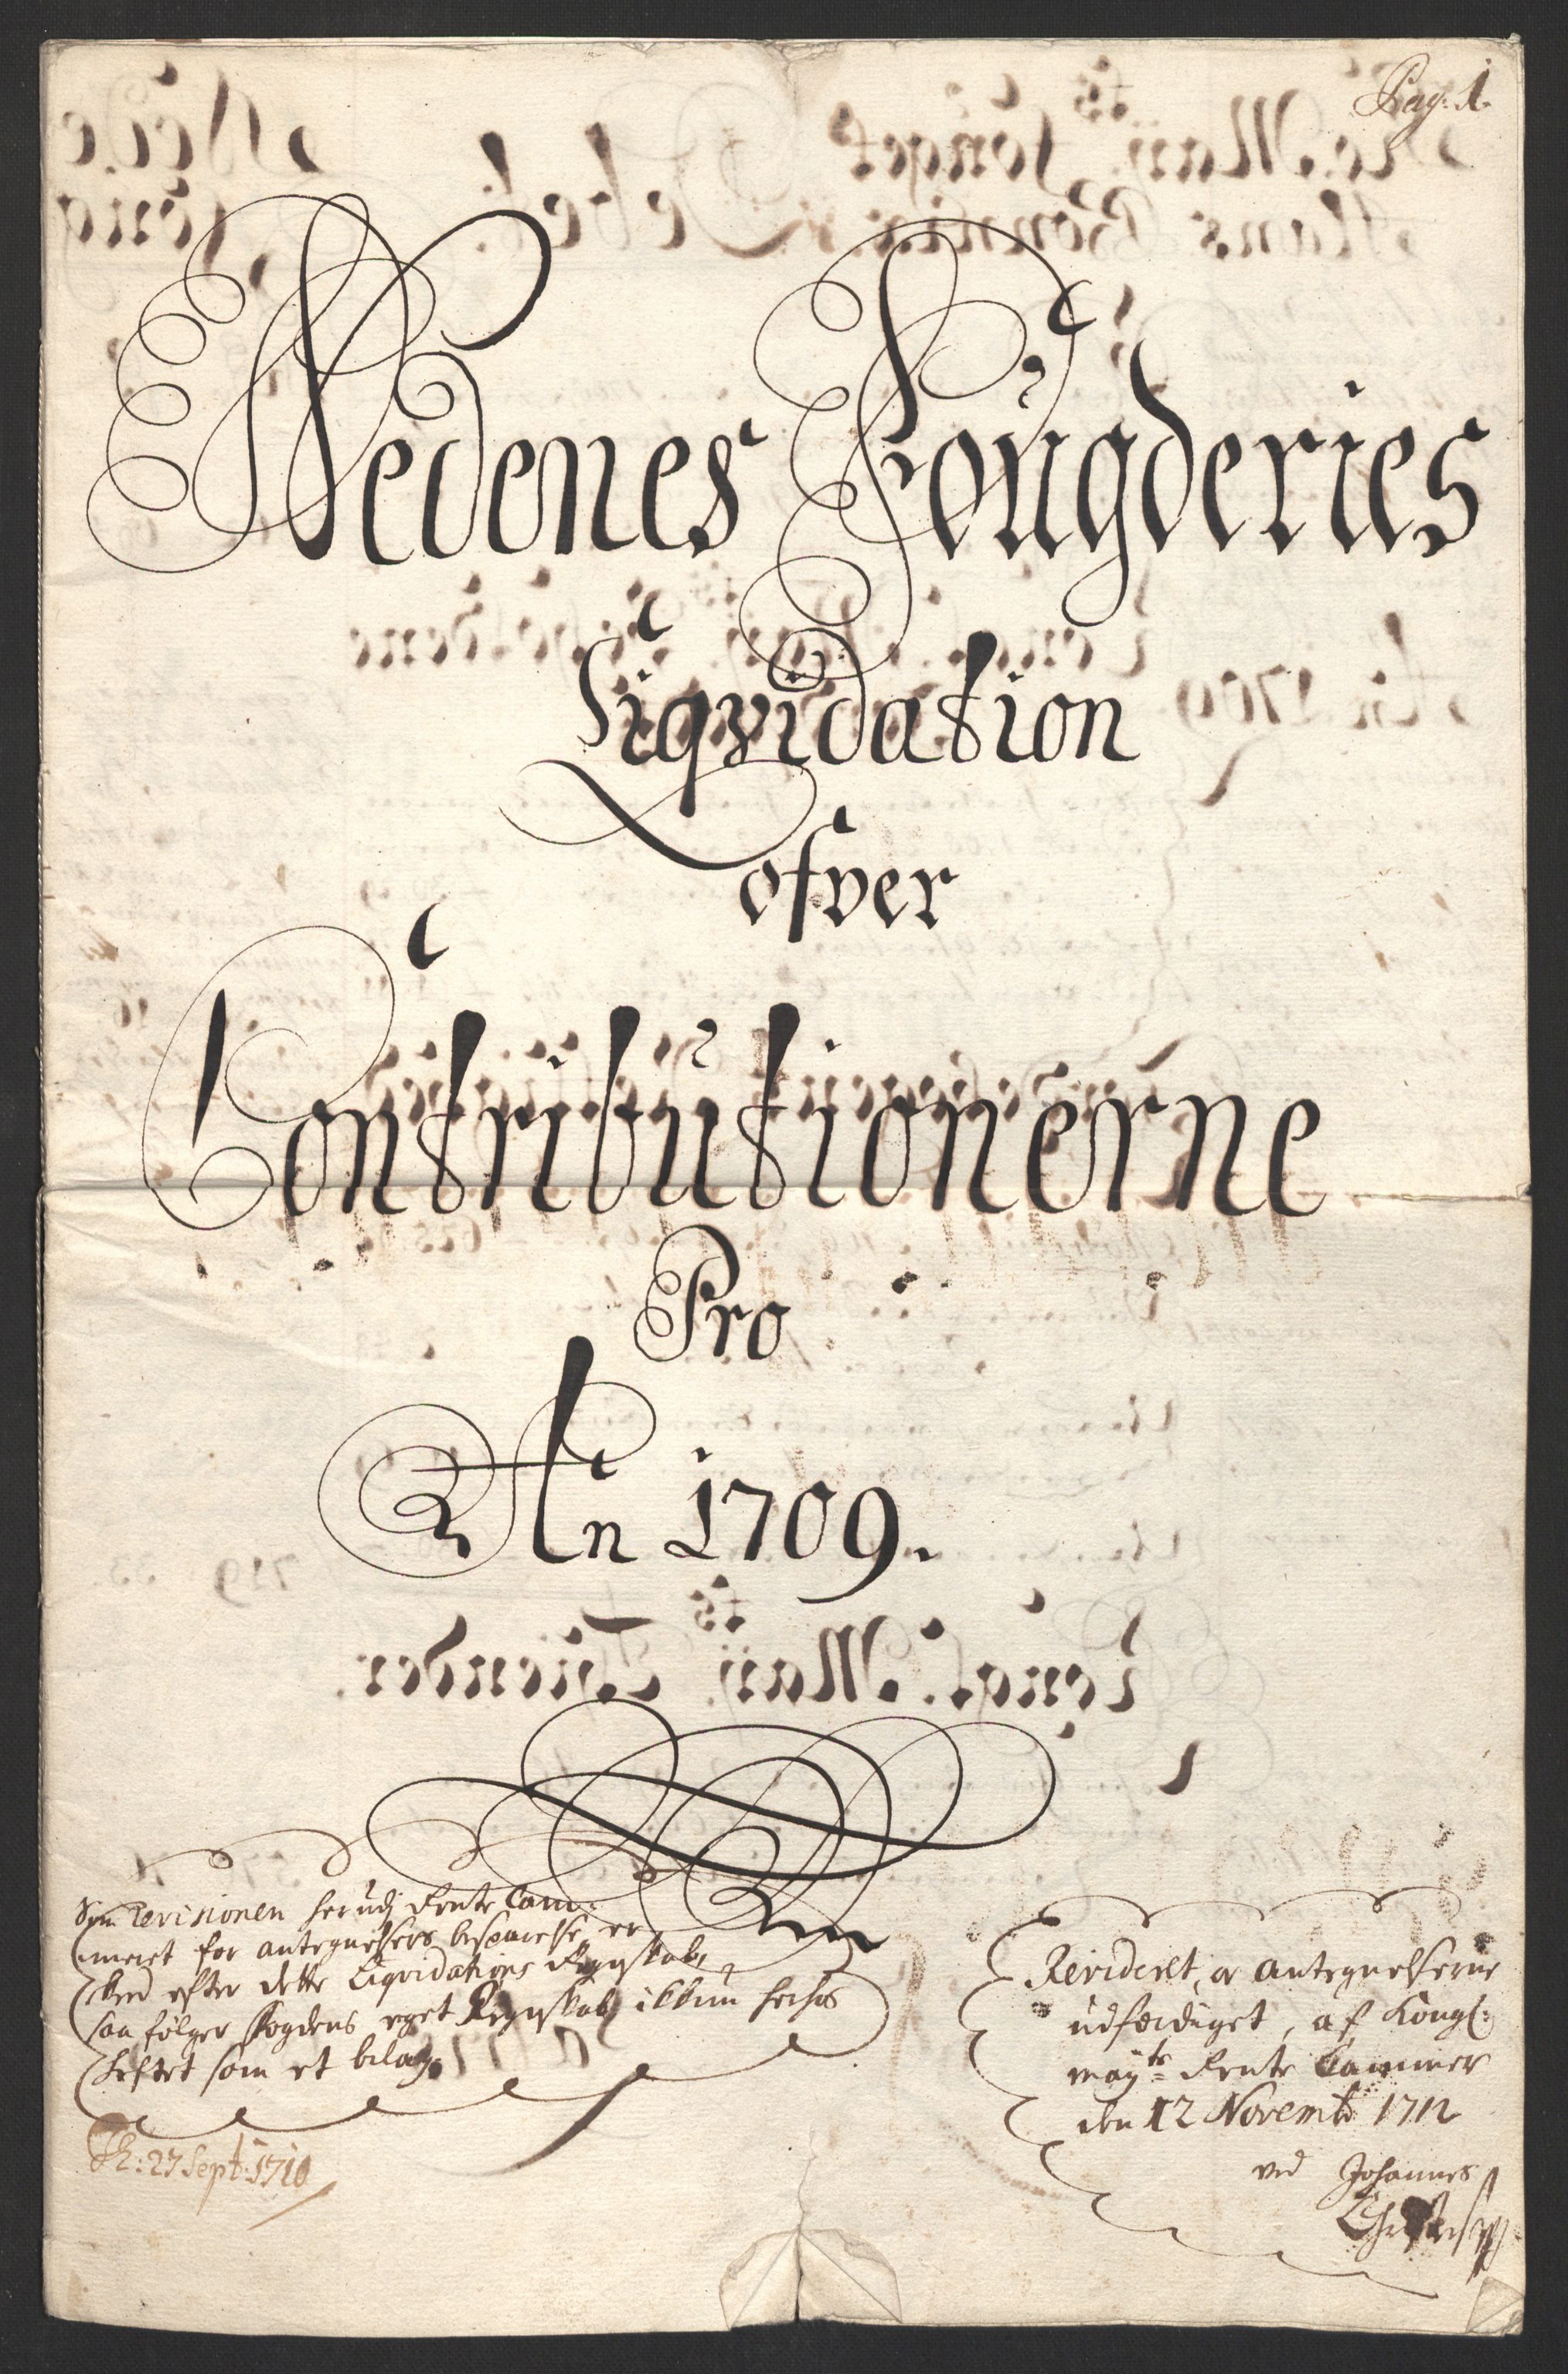 Pag: 1.
Nedenes Fougderies
Liqvidation
ofver
Contributionerne
Pro
An 1709.
Revisionen herudj Rente Cam-
meret for antegnelsers besparelse er
skeed efter dette Liqvidations Regnskab,
saa følger fogdens eget Regnskab ikkun herhos
heftet som et bilag.
27 Sept: 1710
Revideret, og antegnelserne
udferdiget, af Kongl:
mayts Rente Cammer
den 12 Novemb 1712
ved Johannes